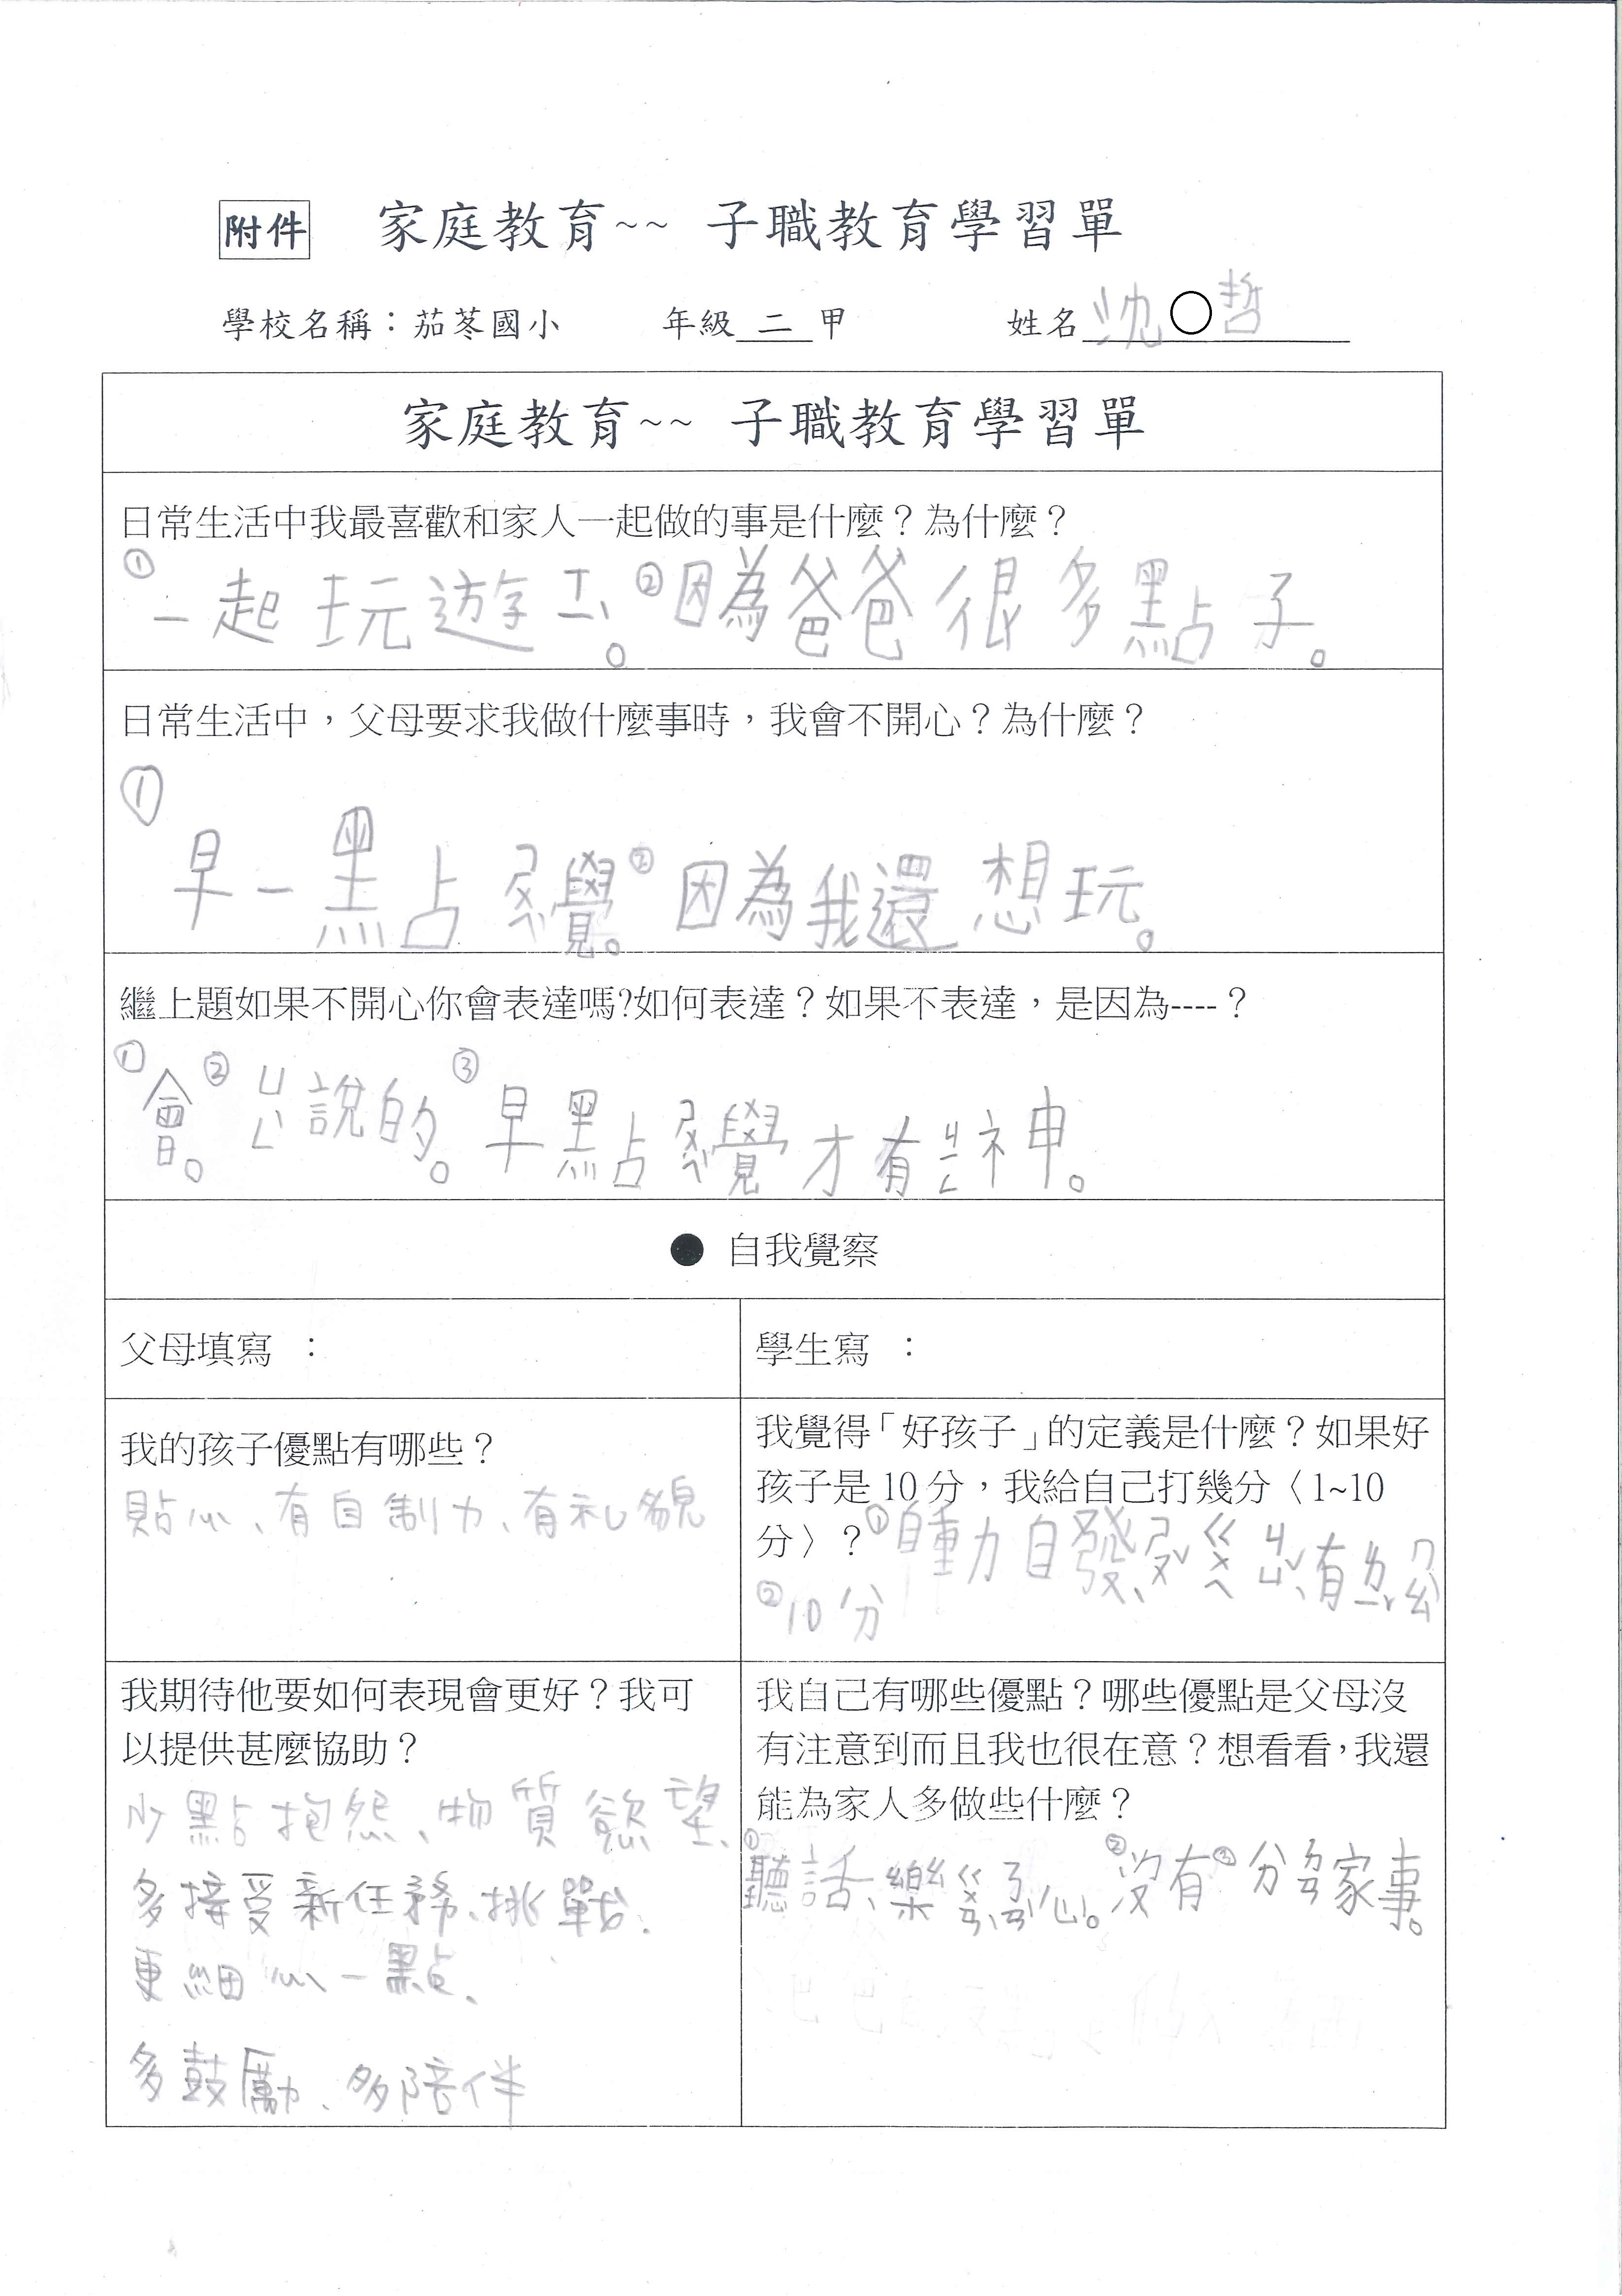 附件 家庭教育~~ 子職教育學習單
學校名稱：茄苳國小 年級 二 甲 姓名 沈○哲
家庭教育~~ 子職教育學習單
日常生活中我最喜歡和家人一起做的事是什麼？為什麼？
①一起玩遊ㄒㄧˋ。②因為爸爸很多點子。
日常生活中，父母要求我做什麼事時，我會不開心？為什麼？
①
早一點ㄕㄨㄟˋ覺。②因為我還想玩。
繼上題如果不開心你會表達嗎?如何表達？如果不表達，是因為----？
①會。②說的。③早點ㄕㄨㄟˋ覺才有ㄐㄧㄥ神。
● 自我覺察
父母填寫 ：
學生寫 ：
我的孩子優點有哪些？
貼心、有自制力、有礼貌
我覺得「好孩子」的定義是什麼？如果好
孩子是 10 分，我給自己打幾分〈 1~10
分〉？①自動自發、ㄕㄡˇㄍㄨㄟ ㄐㄩˇ、有ㄌㄧˇㄇㄠˋ
②10分
我期待他要如何表現會更好？我可
以提供甚麼協助？
少點抱怨、物質慾望、
多接受新任務、挑戰.
更細心一點.
多鼓勵、多陪伴
我自己有哪些優點？哪些優點是父母沒
有注意到而且我也很在意？想看看，我還
能為家人多做些什麼？
①聽話、樂ㄍㄨㄢ、ㄕㄢˋ心。②沒有③分ㄉㄢ家事。